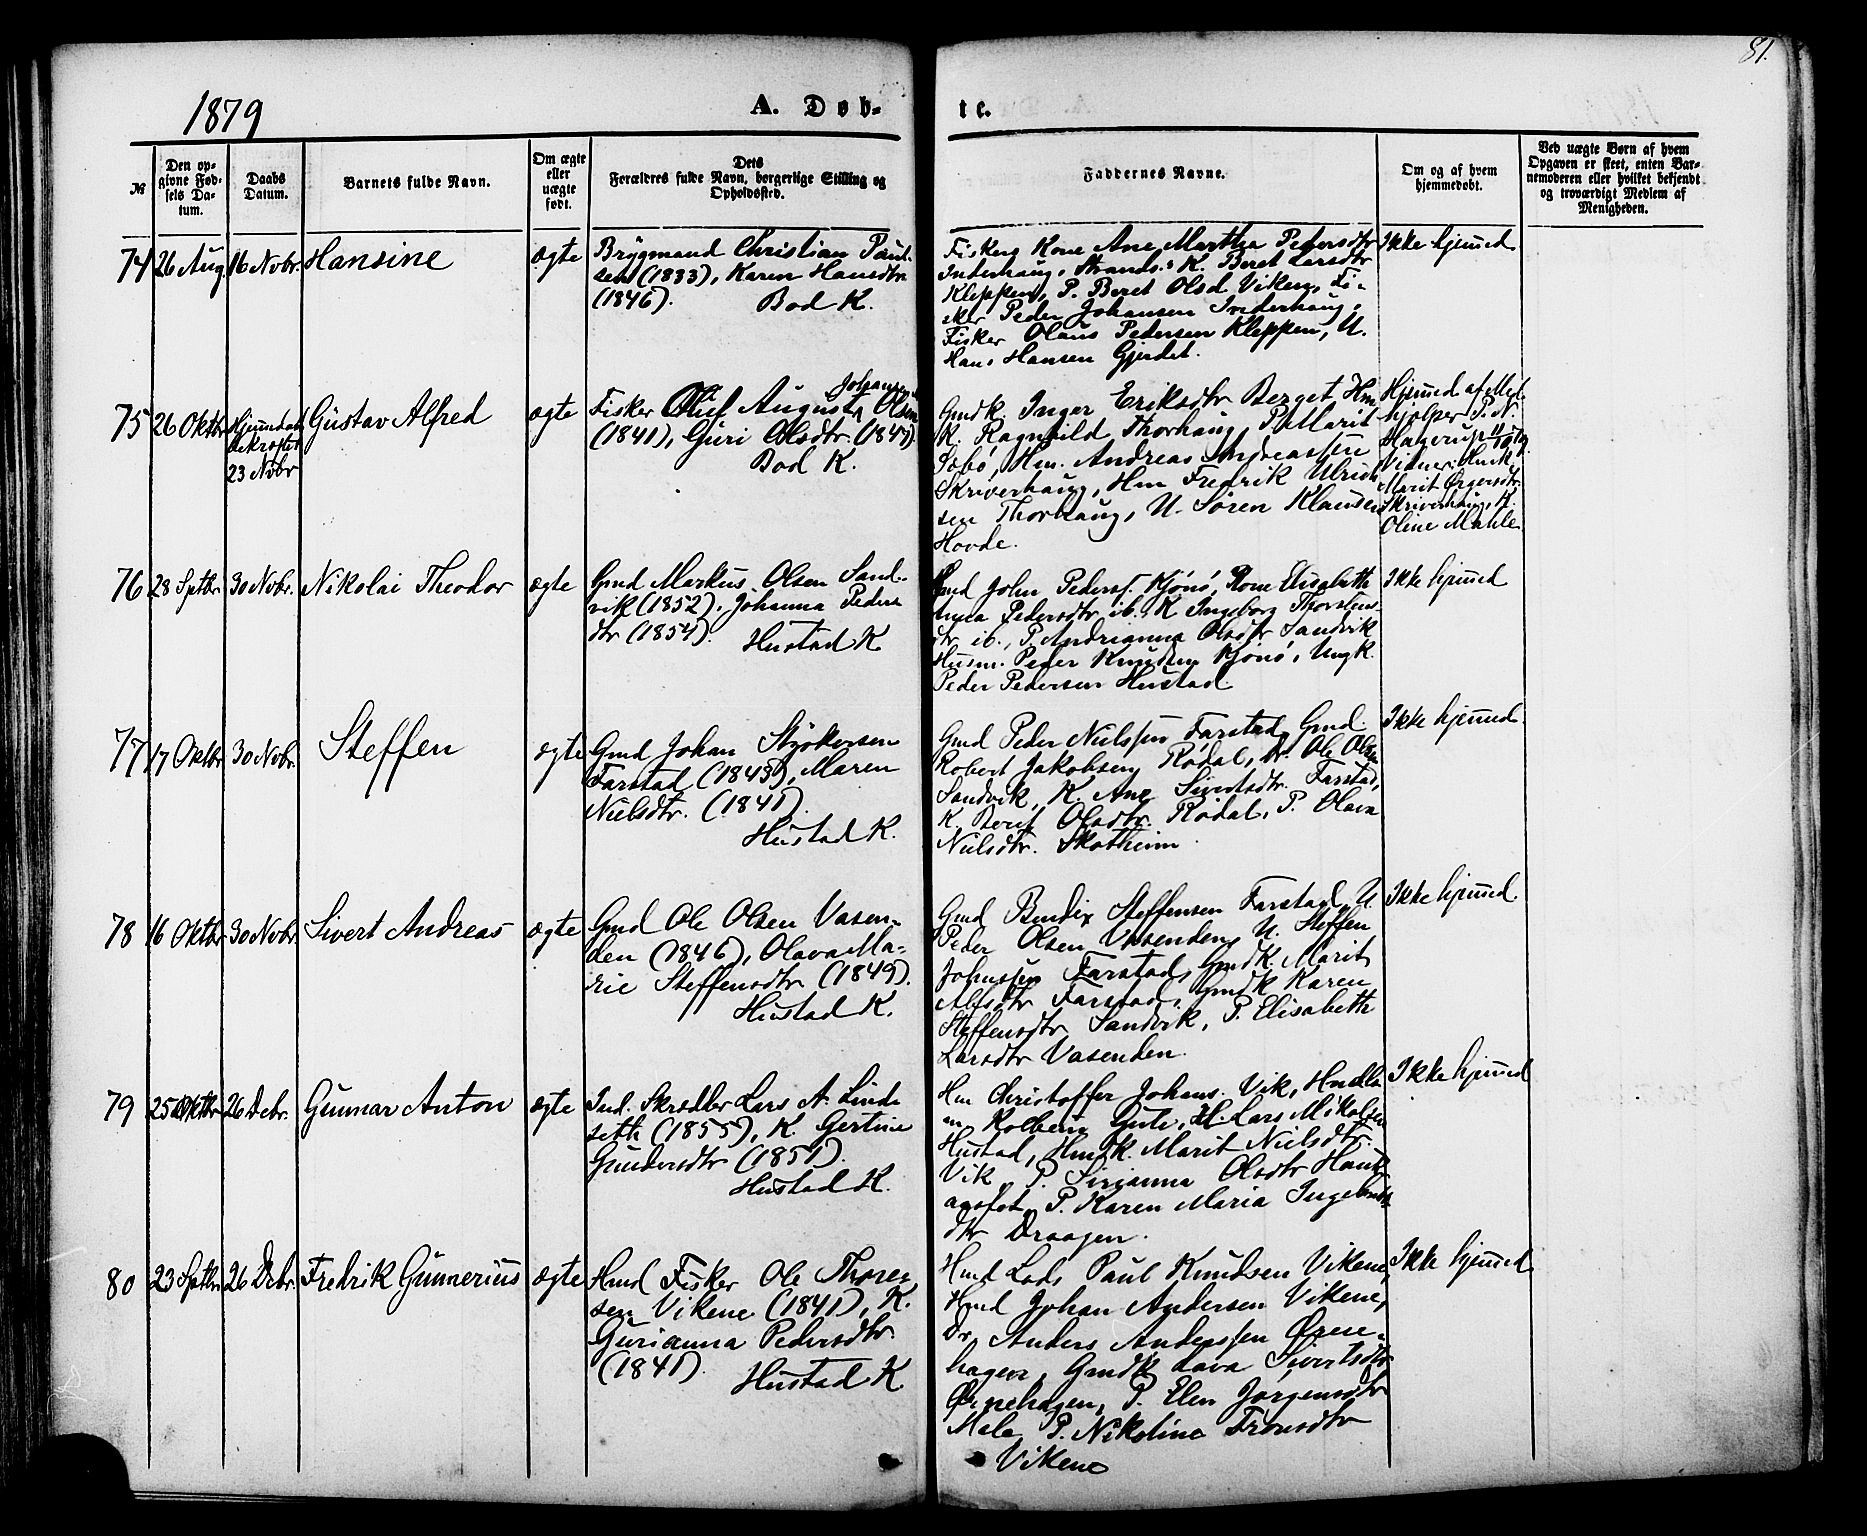 81.
1879
A. Døb-
te.
№
Den op-
givne Fød-
sels Da-
tum.
Daabs
Datum.
Barnets fulde Navn.
Om ægte
eller
uægte
født.
Dets
Forældres fulde Navn, borgerlige Stilling og
Opholdssted.
Faddernes Navne.
Om og af hvem
hjemmedøbt.
Ved uægte Børn af hvem
Opgaven er skeet, enten Bar-
nemoderen eller hvilket bekjendt
og troværdigt Medlem af
Menigheden.
74 26 Aug. 16 Novbr. Hansine ægte
Brygmand Christian Paul-
sen (1833), Karen Hansdtr
(1846). Bod K.
Fiskers Kone Ane Martha Pedersdtr
Inderhaug, Strands. K. Beret Larsdtr
Kleppen, P. Beret Olsd Viken, Fi-
sker Peder Johansen Inderhaug,
Fisker Olaus Pedersen Kleppen, U.
Hans Hansen Gjerdet.
Ikke hjemmed
75 26 Oktbr Gustav Alfred ægte
23 Nvbr
Johansen
Fisker Oluf August Olsen
(1841), Guri Olsdtr. (1847).
Bod K.
Gmdk. Inger Eriksdtr Berget, Hm
K. Ragnhild Thorhaug, P. Marit
Sobø, Hm. Andreas Andreassen
Skriverhaug, Hm Fredrik Ulrick
sen Thorhaug, U. Søren Klausen
Hovde.
Hjemmed af Med-
hjelper P. N.
Hagerup
Vidner: Hmk.
Marit
Skriverhaug, K.
Oline Mahle.
76 28 Sptbr. 30 Novbr. Nikolai Theodor ægte
Gmd Markus Olsen Sand-
vik (1852), Johanna Peders
dtr (1854). Hustad K.
Gmd John Peders. Kjønø, Kone Elisabeth
Anna Pedersdtr ib. K Ingeborg Thorstens-
dtr ib., P. Andrianna Olsdtr Sandvik
Husm. Peder Knudsen Kjønø, Ungk.
Peder Pedersen Hustad
Ikke hjemmed
77 17 Oktbr 30 Nvbr. Steffen ægte
Gmd Johan Styrkersen
Farstad (1843), Maren
Nielsdtr. (1841).
Hustad K.
Gmd Peder Nielssen Farstad, Gmd.
Robert Jakobsen Rødal, Dr. Ole Olsen
Sandvik, K. Ane Sivertsdtr. Farstad,
K. Berit Olsdtr. Rødal, P. Olava
Nielsdtr. Skotheim.
Ikke hjemmed.
78 16 Oktbr 30 Novbr. Sivert Andreas ægte
Gmd Ole Olsen Vasen-
den (1846), Olava Ma-
rie Steffensdtr (1849).
Hustad K.
Gmd Bendix Steffensen Farstad, U
Peder Olsen Vasenden, U. Steffen
Johnssen Farstad, Gmdk. Marit
Alfsdtr Farstad, Gmdk Karen
Steffensdtr Sandvik, P. Elisabeth
Larsdtr Vasenden.
Ikke hjemmed.
79 25 Oktbr 26 Debr. Gunnar Anton ægte
Ind. Skrædder Lars A. Linde
seth (1855), K. Gertine
Gundersdtr (1851).
Hustad K.
Hm Christoffer Johans. Vik, Hndls
m Kolbein Gule, H. Lars Mikalsen
Hustad, Hmdk. Marit Nielsdtr.
Vik, P. Sirianna Olsdtr Hauk
aasfot, P. Karen Maria Ingebrigts
dtr Draagen.
Ikke hjemmed
80 23 Sptbr. 26 Debr. Fredrik Gunnerius ægte
Hmd Fisker Ole Thores
sen Vikene (1841), K.
Gurianna Pedersdtr.
(1841). Hustad K
Hmd Lods Paul Knudsen Vikene,
Hmd Johan Andersen Vikene,
Dr Anders Anderssen Ørne-
hagen, Gmdk Lava Sivertsdtr
Ørnehagen, P. Elen Jørgensdtr
Mele, P. Nikoline Fronsdtr
Vikene
Ikke hjemmed.